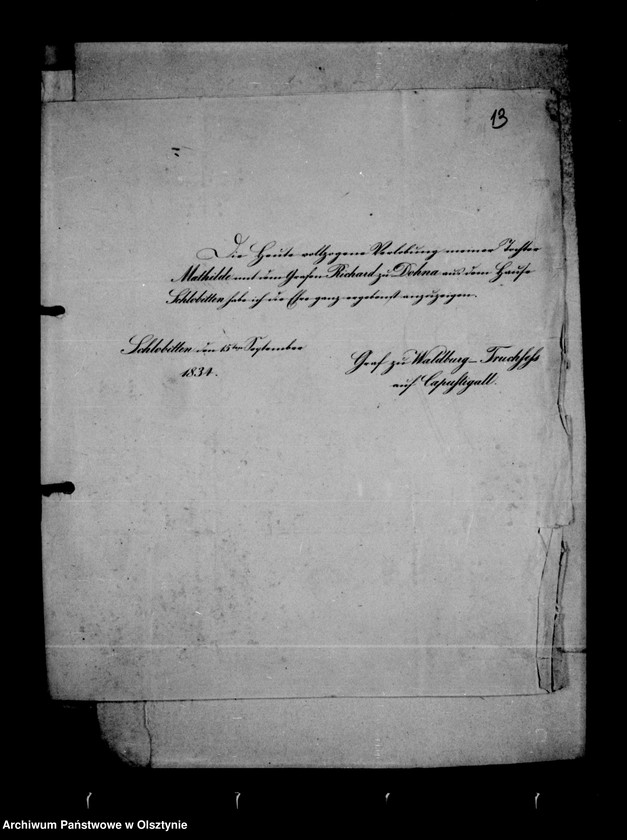 13
Die heute vollzogene Verlobung meiner Tochter
Mathilde mit dem Grafen Richard zu Dohna aus dem Hause
Schlobitten habe ich die Ehre ganz ergebenst anzuzeigen.
Schlobitten den 15ten September
1834.
Graf zu Waldburg-Truchseß
auf Capustigall.
Archiwum Państwowe w Olsztynie